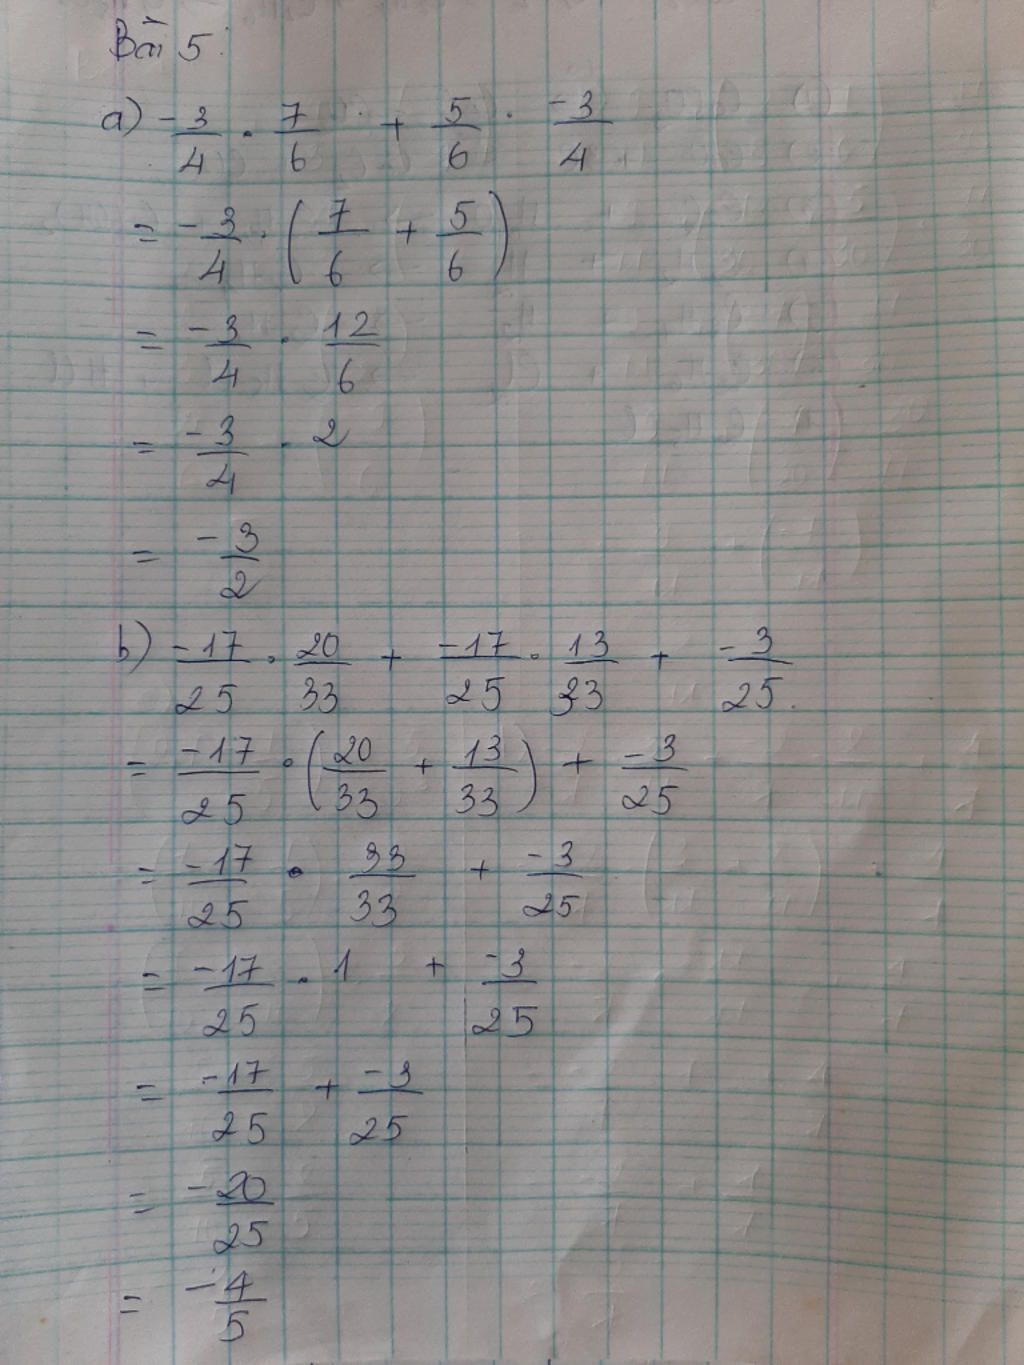 Bài 5:
a) -3/4 . 7/6 + 5/6 . -3/4
= -3/4 . (7/6 + 5/6)
= -3/4 . 12/6
= -3/4 . 2
= -3/2
b) -17/25 . 20/33 + -17/25 . 13/33 + -3/25.
= -17/25 . (20/33 + 13/33) + -3/25
= -17/25 . 33/33 + -3/25
= -17/25 . 1 + -3/25
= -17/25 + -3/25
= -20/25
= -4/5